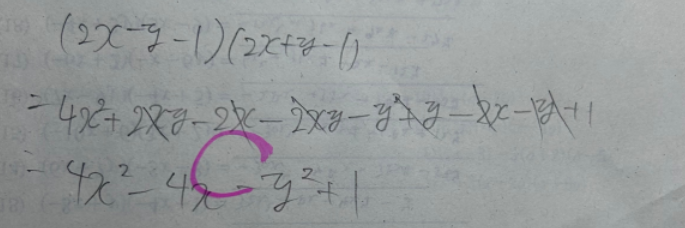 (2x-y-1)(2x+y-1)
=4x²+2xy-2x-2xy-y²+y-2x-y+1
=4x²-4x-y²+1